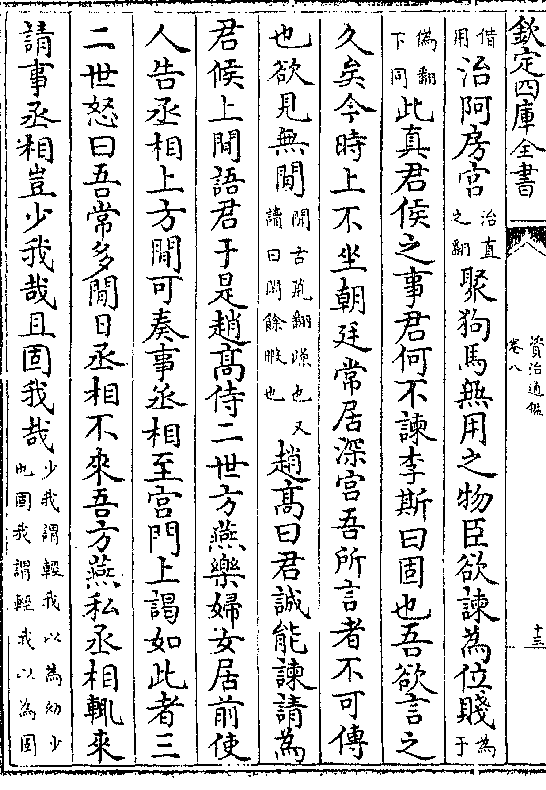 欽定四庫全書
資治通鑑
卷八
十三
用借治阿房宫治直之翻聚狗馬無用之物臣欲諫為位賤為于
偽翻下同此真君侯之事君何不諫李斯曰固也吾欲言之
久矣今時上不坐朝廷常居深宫吾所言者不可傳
也欲見無閒閒古莧翻隙也又讀曰閑餘暇也趙髙曰君誠能諫請為
君候上閒語君于是趙髙侍二世方燕樂婦女居前使
人告丞相上方閒可奏事丞相至宫門上謁如此者三
二世怒曰吾常多閒日丞相不來吾方燕私丞相輒來
請事丞相豈少我哉且固我哉少我謂輕我以為幼少也固我謂輕我以為固